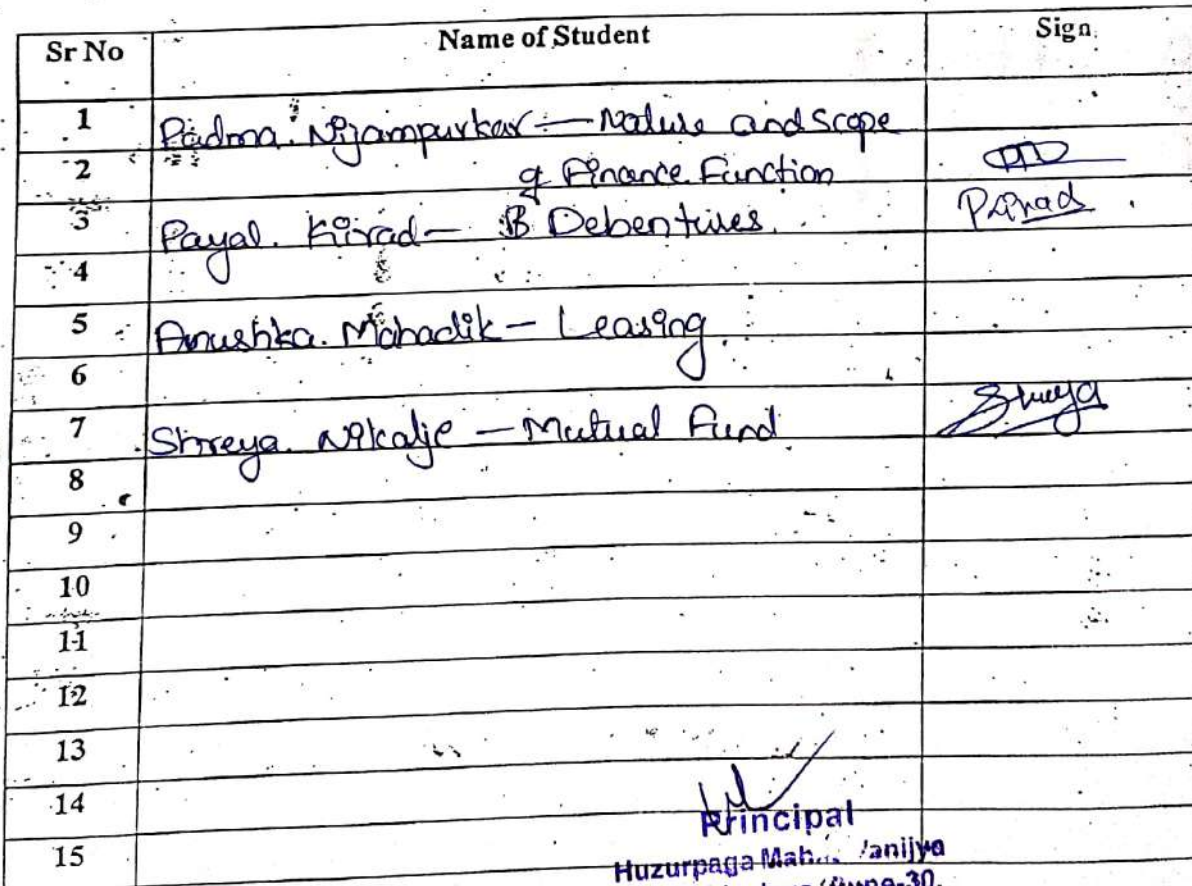 Sr No Name of Student Sign
1 Padma. Nijampurkar — Nature and Scope
2 of Finance Function
3 Payal. Kirad — B Debentures. PKirad
4
5 Anushka. Mahadik — Leasing
6
7 Shreya. Nikalje — Mutual Fund Shreya
8
9
10
11
12
13
14
Principal
15
Huzurpaga
-30.